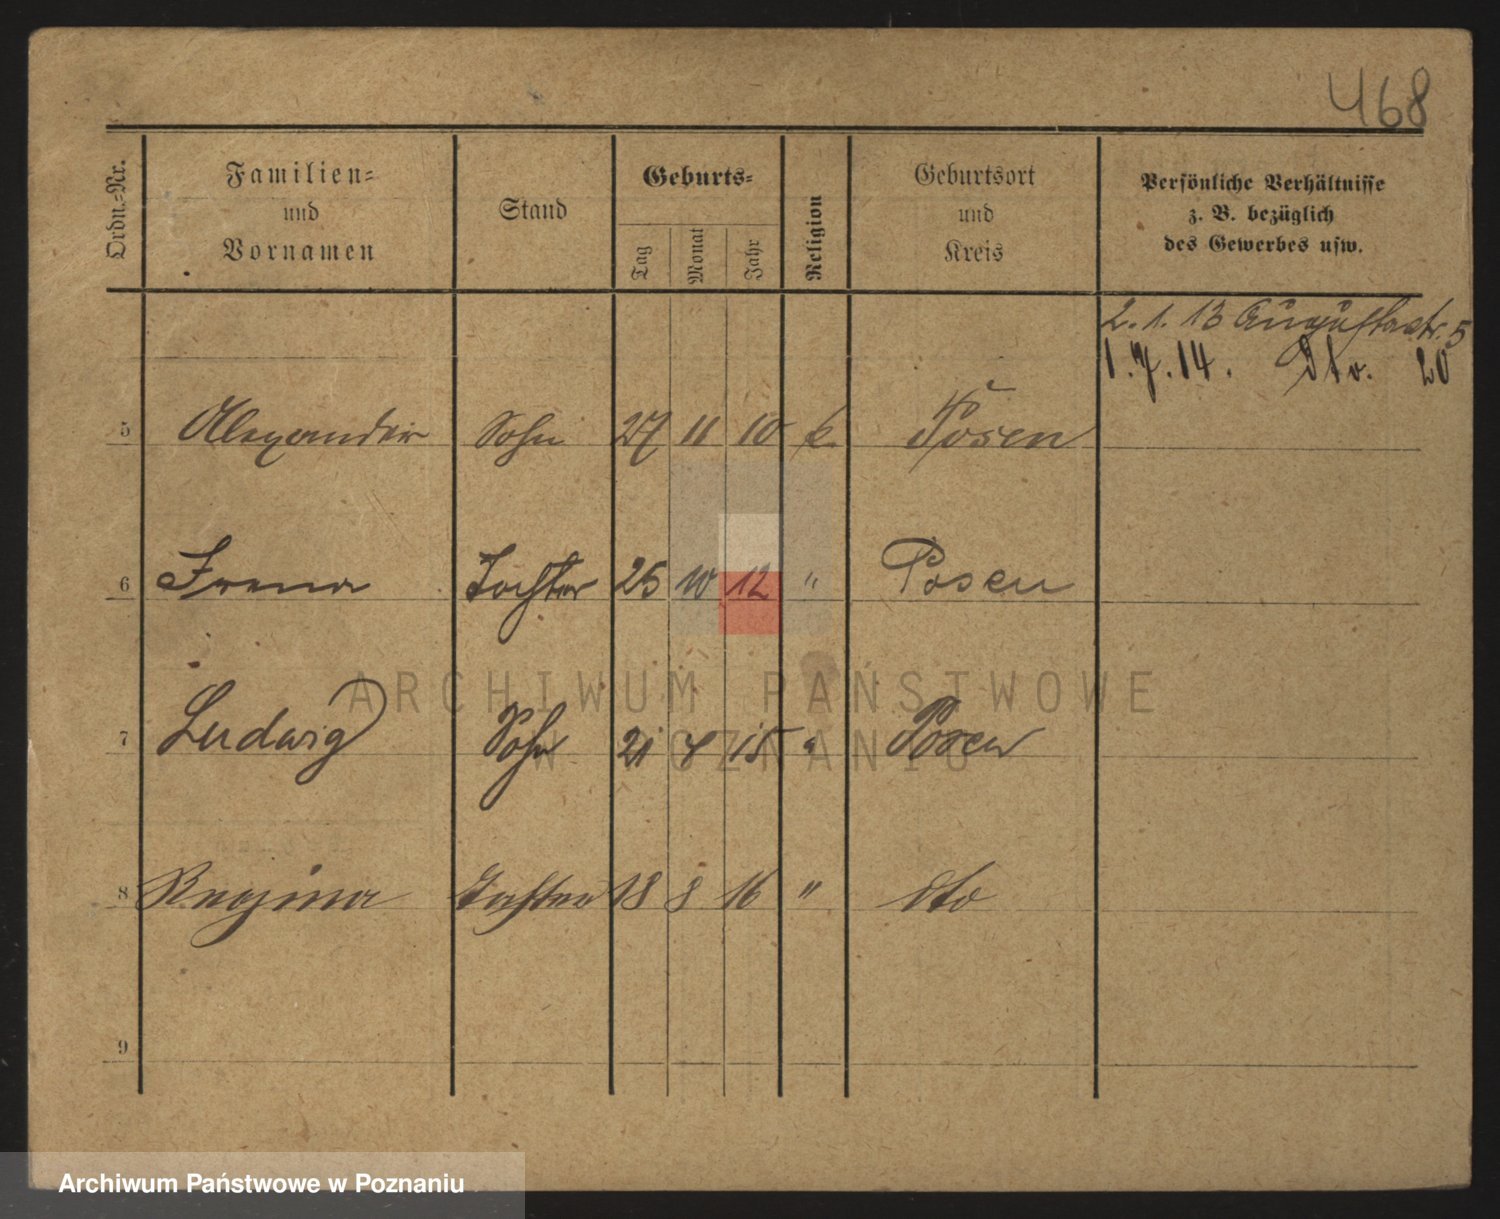 468
Ordn.=Nr.
Familien=
und
Vornamen
Stand
Geburts=
Tag
Monat
Jahr
Religion
Geburtsort
und
Kreis
Persönliche Verhältnisse
z. B. bezüglich
des Gewerbes usw.
2. 1. 13 Augustastr. 5
1. 7. 14. Dto. 20
5 Alexander Sohn 27 11 10 k. Posen
6 Irena Tochter 25 10 12 " Posen
7 Ludwig Sohn 21 7 15 " Posen
8 Regina Tochter 18 8 16 " dto
9
ARCHIWUM PAŃSTWOWE
W POZNANIU
Archiwum Państwowe w Poznaniu